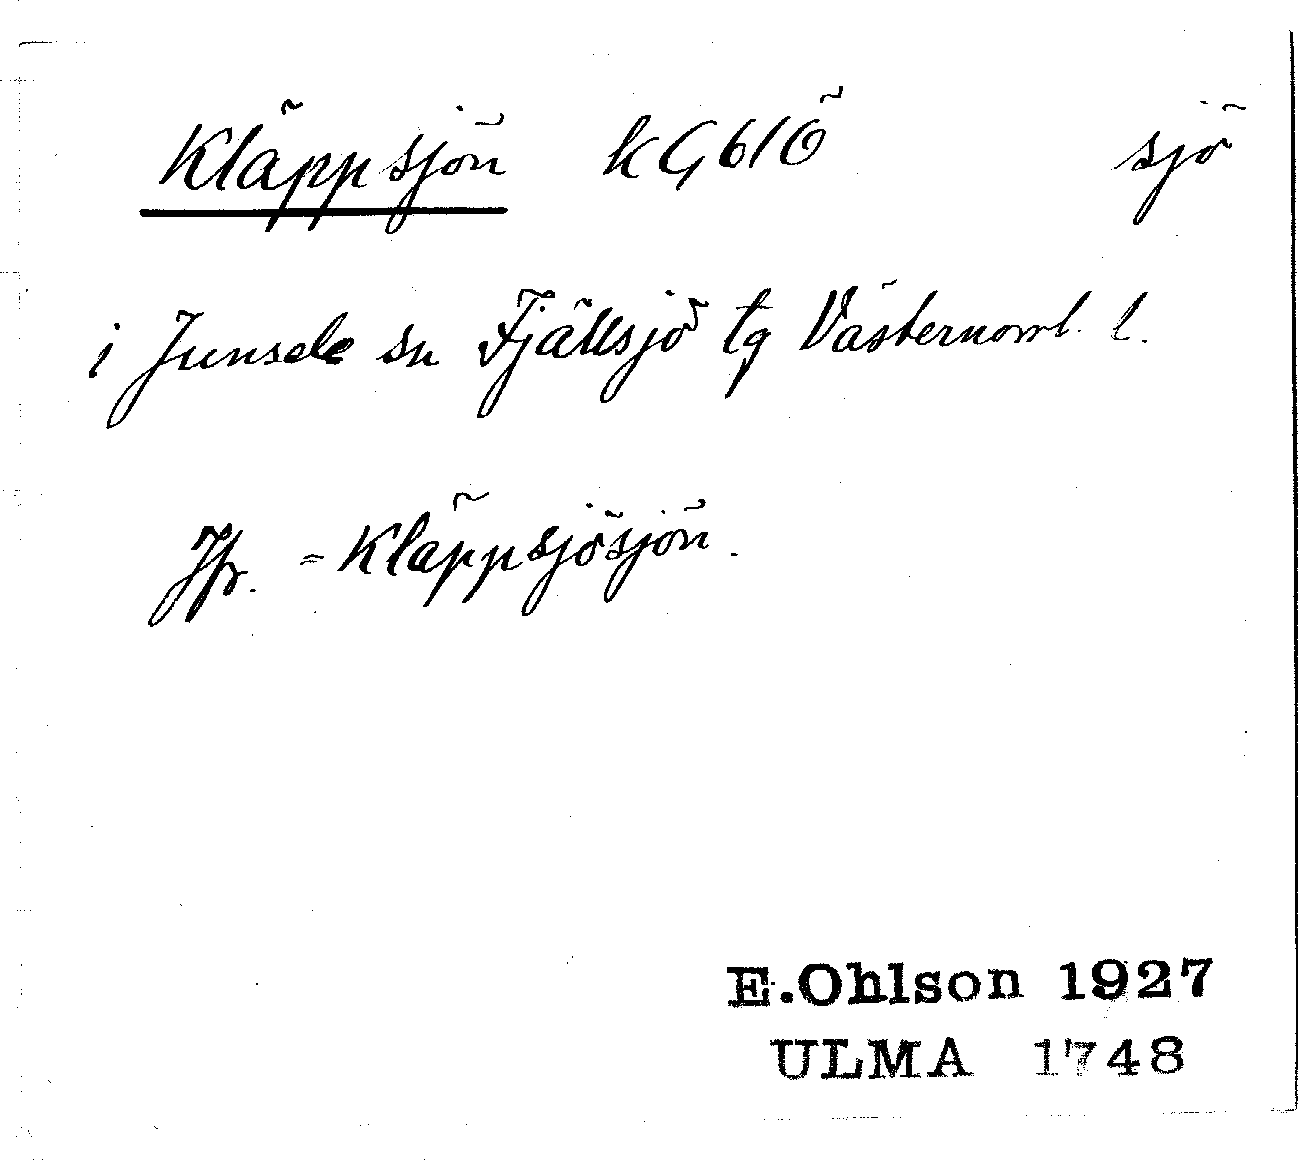 Kläppsjön kG61Ö sjö
i Junsele sn Fjällsjö tg Västernorrl. l.
Jfr. = Kläppsjösjön.
E.Ohlson 1927
ULMA 1748